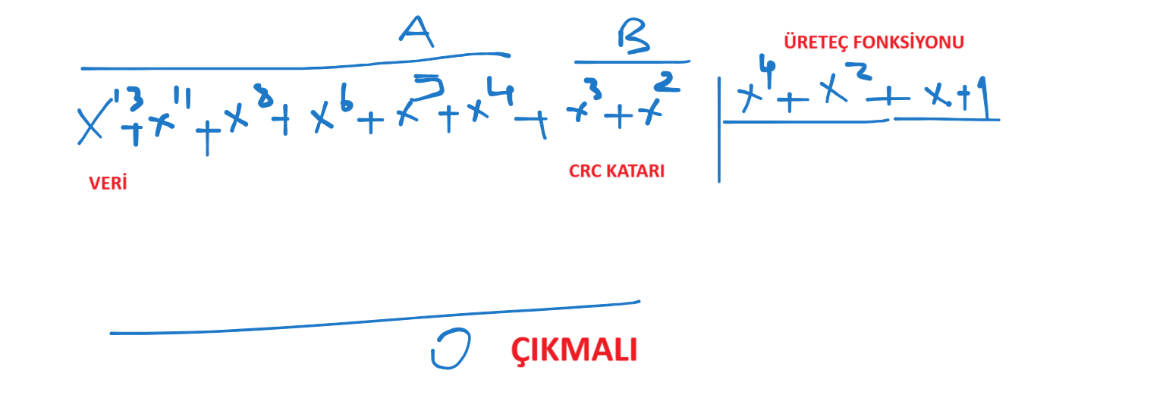 A B ÜRETEÇ FONKSİYONU
x¹³+x¹¹+x⁸+x⁶+x⁵+x⁴+x³+x² x⁴+x²+x+1
VERİ CRC KATARI
0 ÇIKMALI